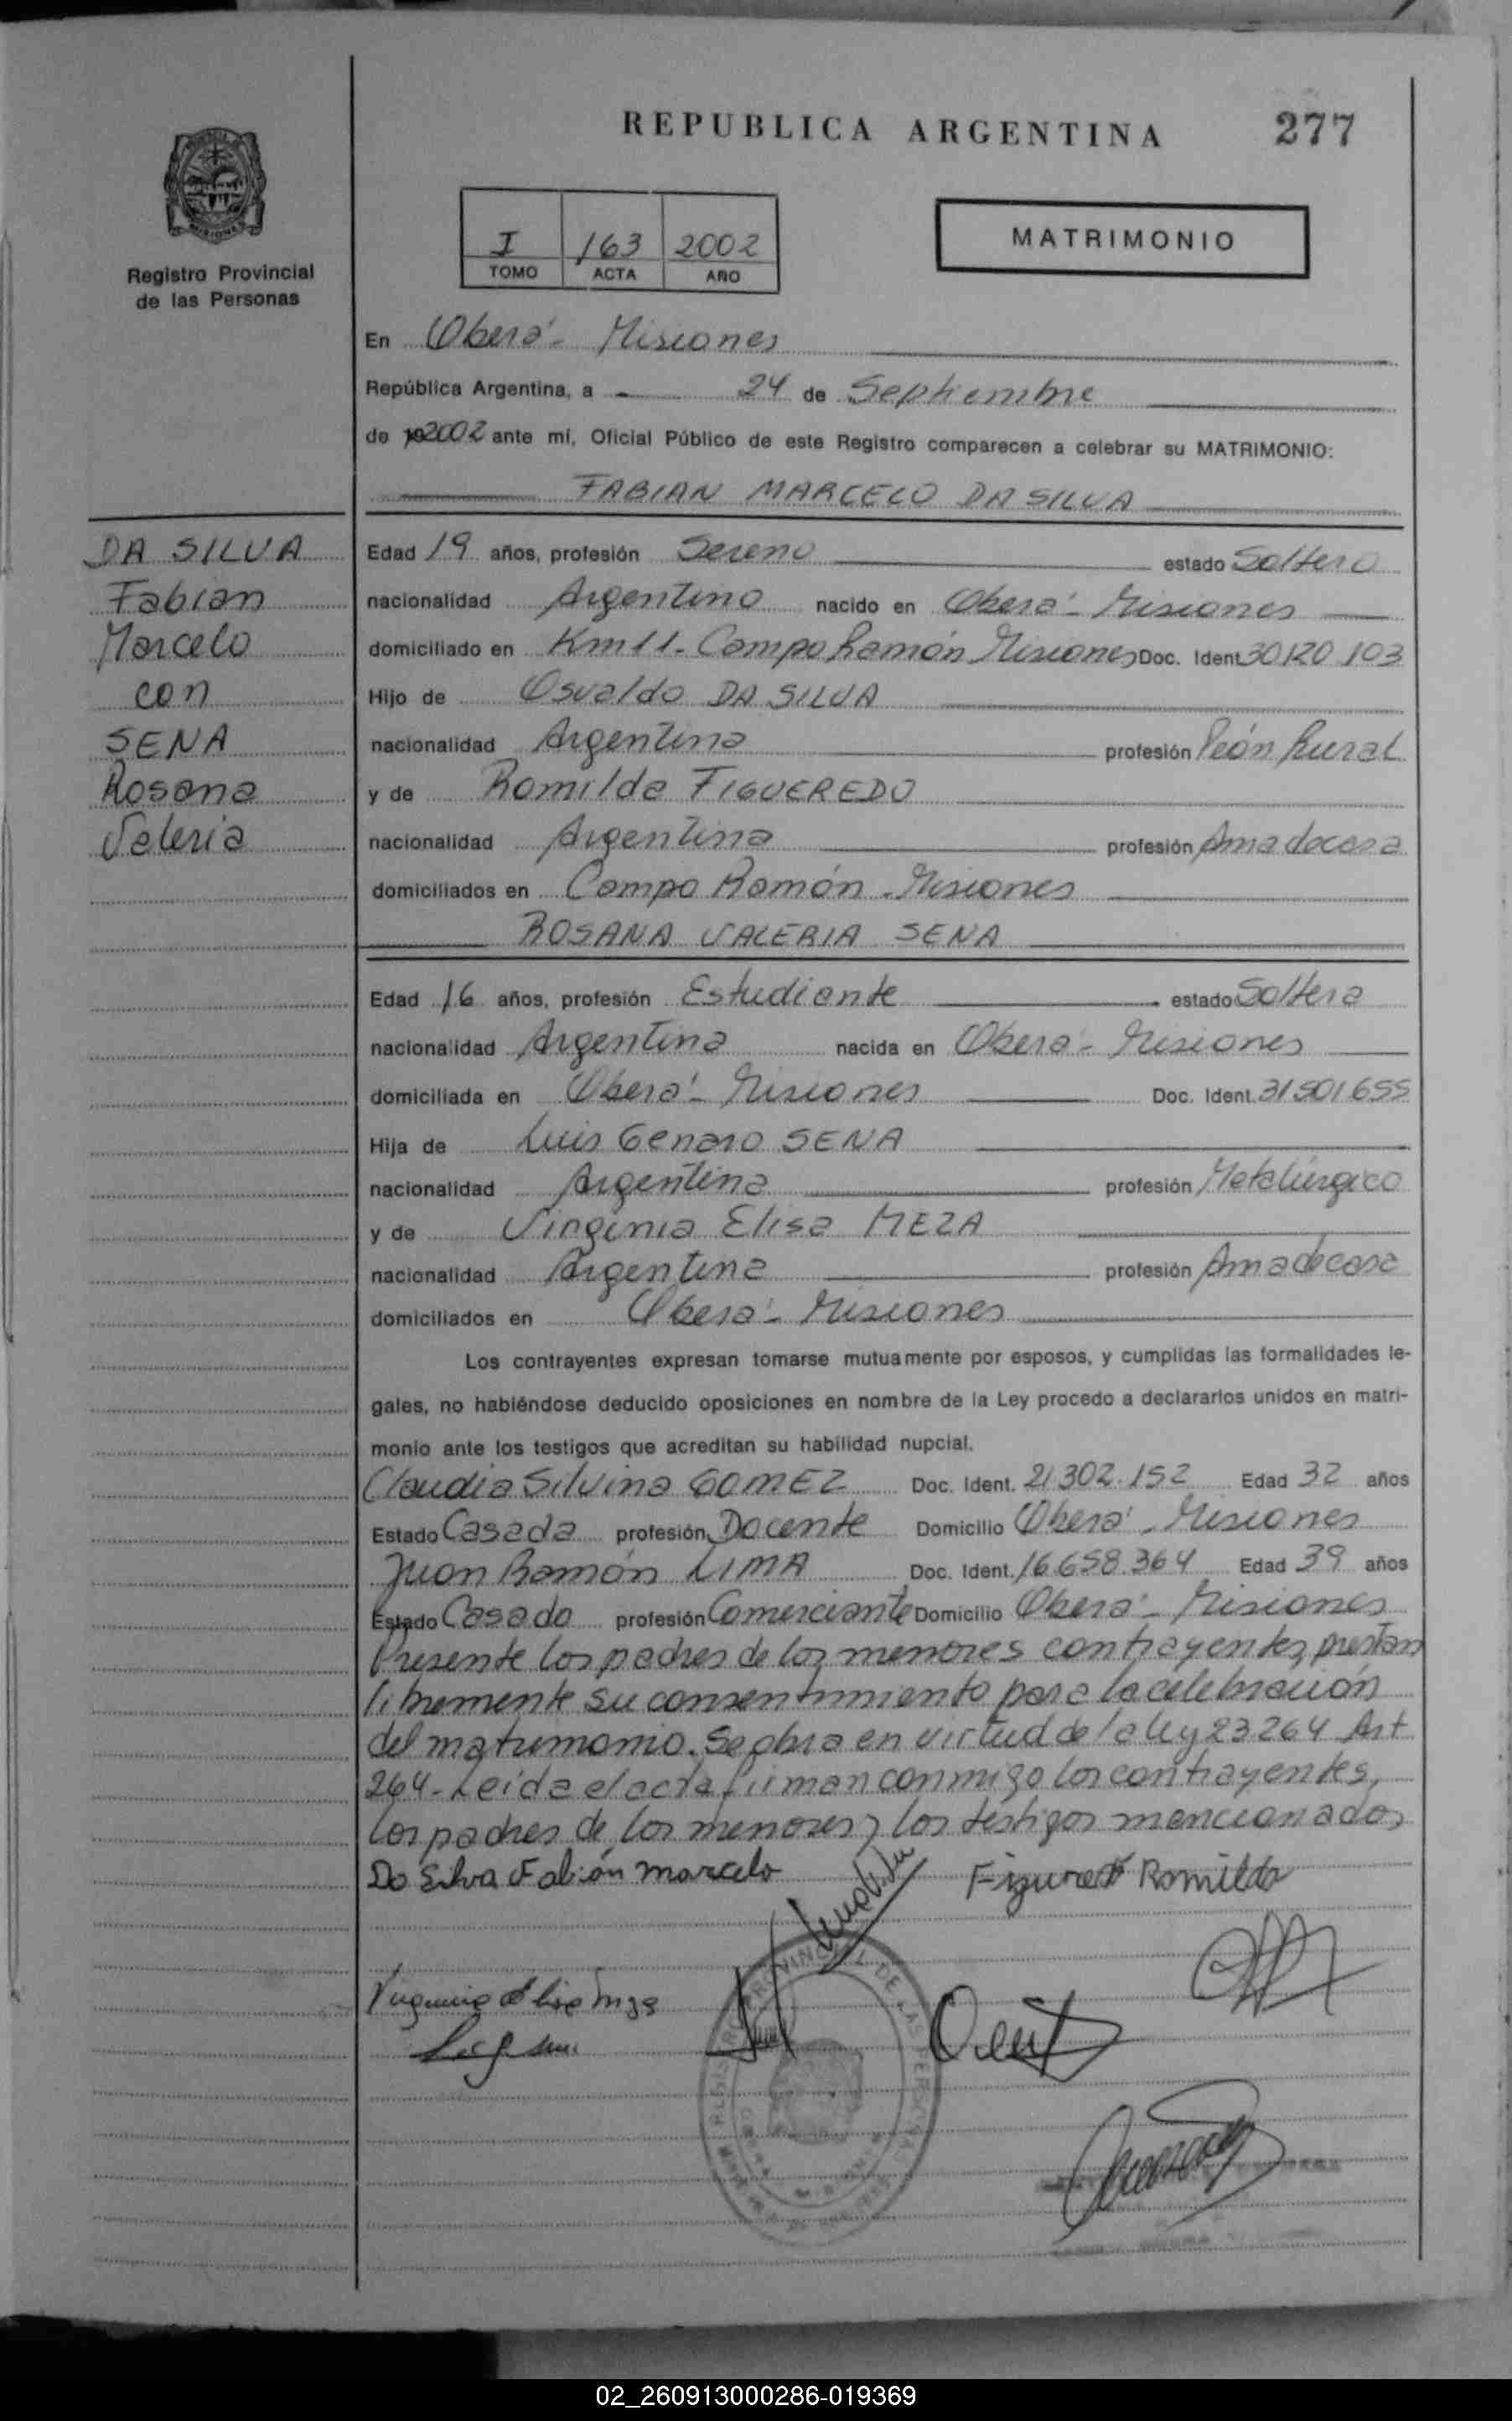 REPUBLICA ARGENTINA 277
I 163 2002
TOMO ACTA AÑO
MATRIMONIO
MISIONES
Registro Provincial
de las Personas
En Oberá - Misiones
República Argentina, a 24 de Septiembre
de 2002 ante mí, Oficial Público de este Registro comparecen a celebrar su MATRIMONIO:
FABIAN MARCELO DA SILVA
DA SILVA
Fabian
Marcelo
con
SENA
Rosana
Valeria
Edad 19 años, profesión Sereno estado Soltero
nacionalidad Argentino nacido en Oberá - Misiones
domiciliado en Km 11 - Campo Ramón Misiones Doc. Ident 30120103
Hijo de Osvaldo DA SILVA
nacionalidad Argentina profesión Peón Rural
y de Romilda FIGUEREDO
nacionalidad Argentina profesión Ama de casa
domiciliados en Campo Ramón - Misiones
ROSANA VALERIA SENA
Edad 16 años, profesión Estudiante estado Soltera
nacionalidad Argentina nacida en Oberá - Misiones
domiciliada en Oberá - Misiones Doc. Ident. 31501655
Hija de Luis Genaro SENA
nacionalidad Argentina profesión Metalúrgico
y de Virginia Elisa MEZA
nacionalidad Argentina profesión Ama de casa
domiciliados en Oberá - Misiones
Los contrayentes expresan tomarse mutuamente por esposos, y cumplidas las formalidades le-
gales, no habiéndose deducido oposiciones en nombre de la Ley procedo a declararlos unidos en matri-
monio ante los testigos que acreditan su habilidad nupcial.
Claudia Silvina GOMEZ Doc. Ident. 21.302.152 Edad 32 años
Estado Casada profesión Docente Domicilio Oberá - Misiones
Juan Ramón LIMA Doc. Ident. 16.658.364 Edad 39 años
Estado Casado profesión Comerciante Domicilio Oberá - Misiones
Presente los padres de los menores contrayentes, prestan
libremente su consentimiento para la celebración
del matrimonio. Se obra en virtud de la ley 23264 Art
264 - Leída el acta firman conmigo los contrayentes,
los padres de los menores y los testigos mencionados
Da Silva Fabián Marcelo
Romilda
Virginia Elisa
02_260913000286-019369